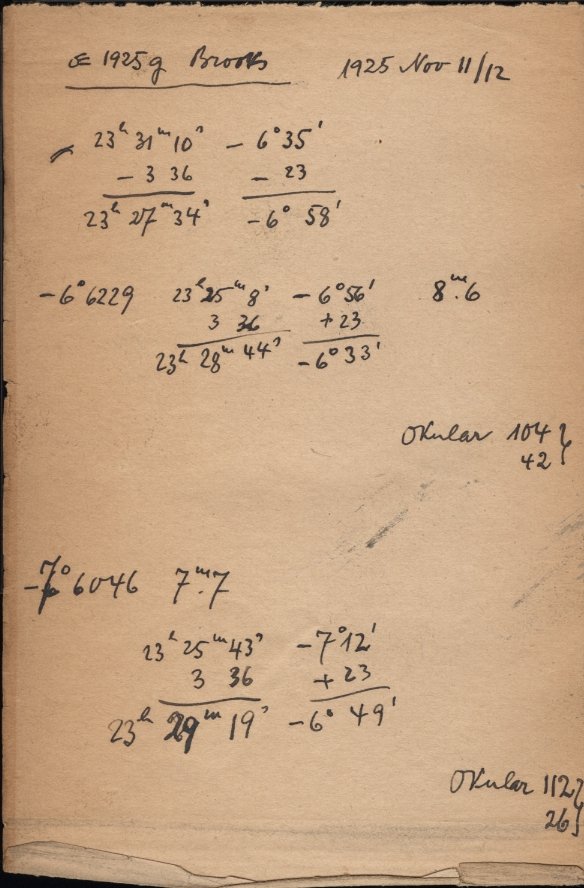 1925g Brooks 1925 Nov 11/12
23ʰ 31ᵐ 10ˢ − 6°35'
− 3 36 − 23
23ʰ 27ᵐ 34ˢ −6° 58'
−6°6229 23ʰ 25ᵐ 8ˢ − 6°56' 8ᵐ.6
3 36 +23
23ʰ 28ᵐ 44ˢ −6° 33'
Okular 104
42
−7°6046 7ᵐ.7
23ʰ 25ᵐ 43ˢ −7°12'
3 36 +23
23ʰ 29ᵐ 19ˢ −6° 49'
Okular 112
26